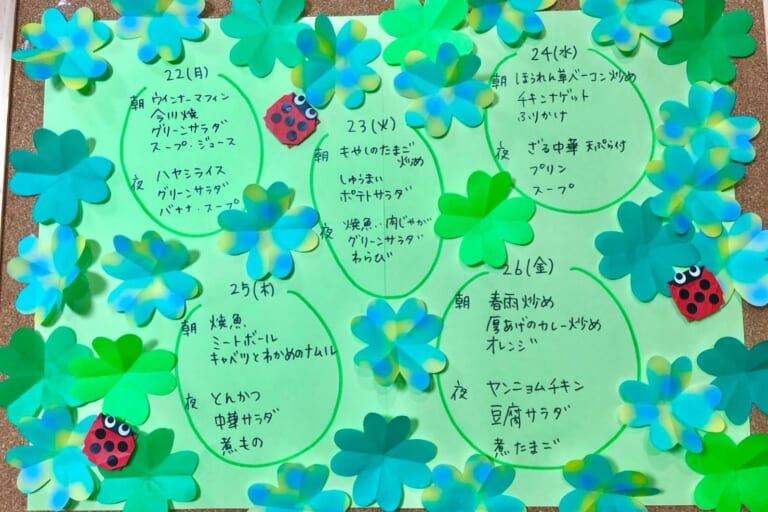 22(月)
朝 ウインナーマフィン
今川焼
グリーンサラダ
スープ・ジュース
夜 ハヤシライス
グリーンサラダ
バナナ・スープ
23(火)
朝 もやしのたまご
炒め
しゅうまい
ポテトサラダ
夜 焼魚・肉じゃが
グリーンサラダ
わらび
24(水)
朝 ほうれん草ベーコン炒め
チキンナゲット
ふりかけ
夜 ざる中華 天ぷら付
プリン
スープ
25(木)
朝 焼魚
ミートボール
キャベツとわかめのナムル
夜 とんかつ
中華サラダ
煮もの
26(金)
朝 春雨炒め
厚あげのカレー炒め
オレンジ
夜 ヤンニョムチキン
豆腐サラダ
煮たまご